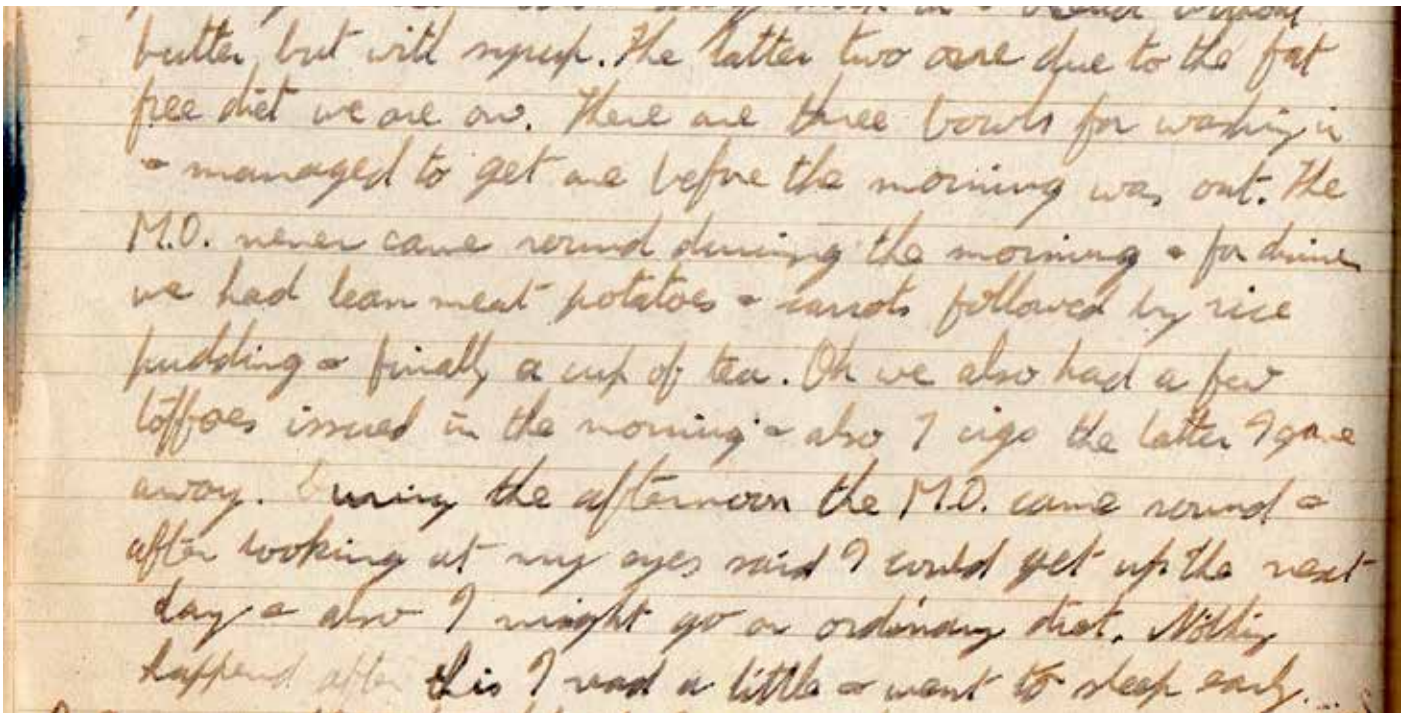 butter, but with syrup. The latter two are due to the fat
free diet we are on. There are three bowls for washing in
& managed to get one before the morning was out. The
M.O. never came round during the morning & for dinner
we had lean meat potatoes & carrots followed by rice
pudding & finally a cup of tea. Oh we also had a few
toffees issued in the morning & also 7 cigs the latter I gave
away. During the afternoon the M.O. came round &
after looking at my eyes said I could get up the next
day & also I might go on ordinary diet. Nothing
happend after this I read a little & went to sleep early.